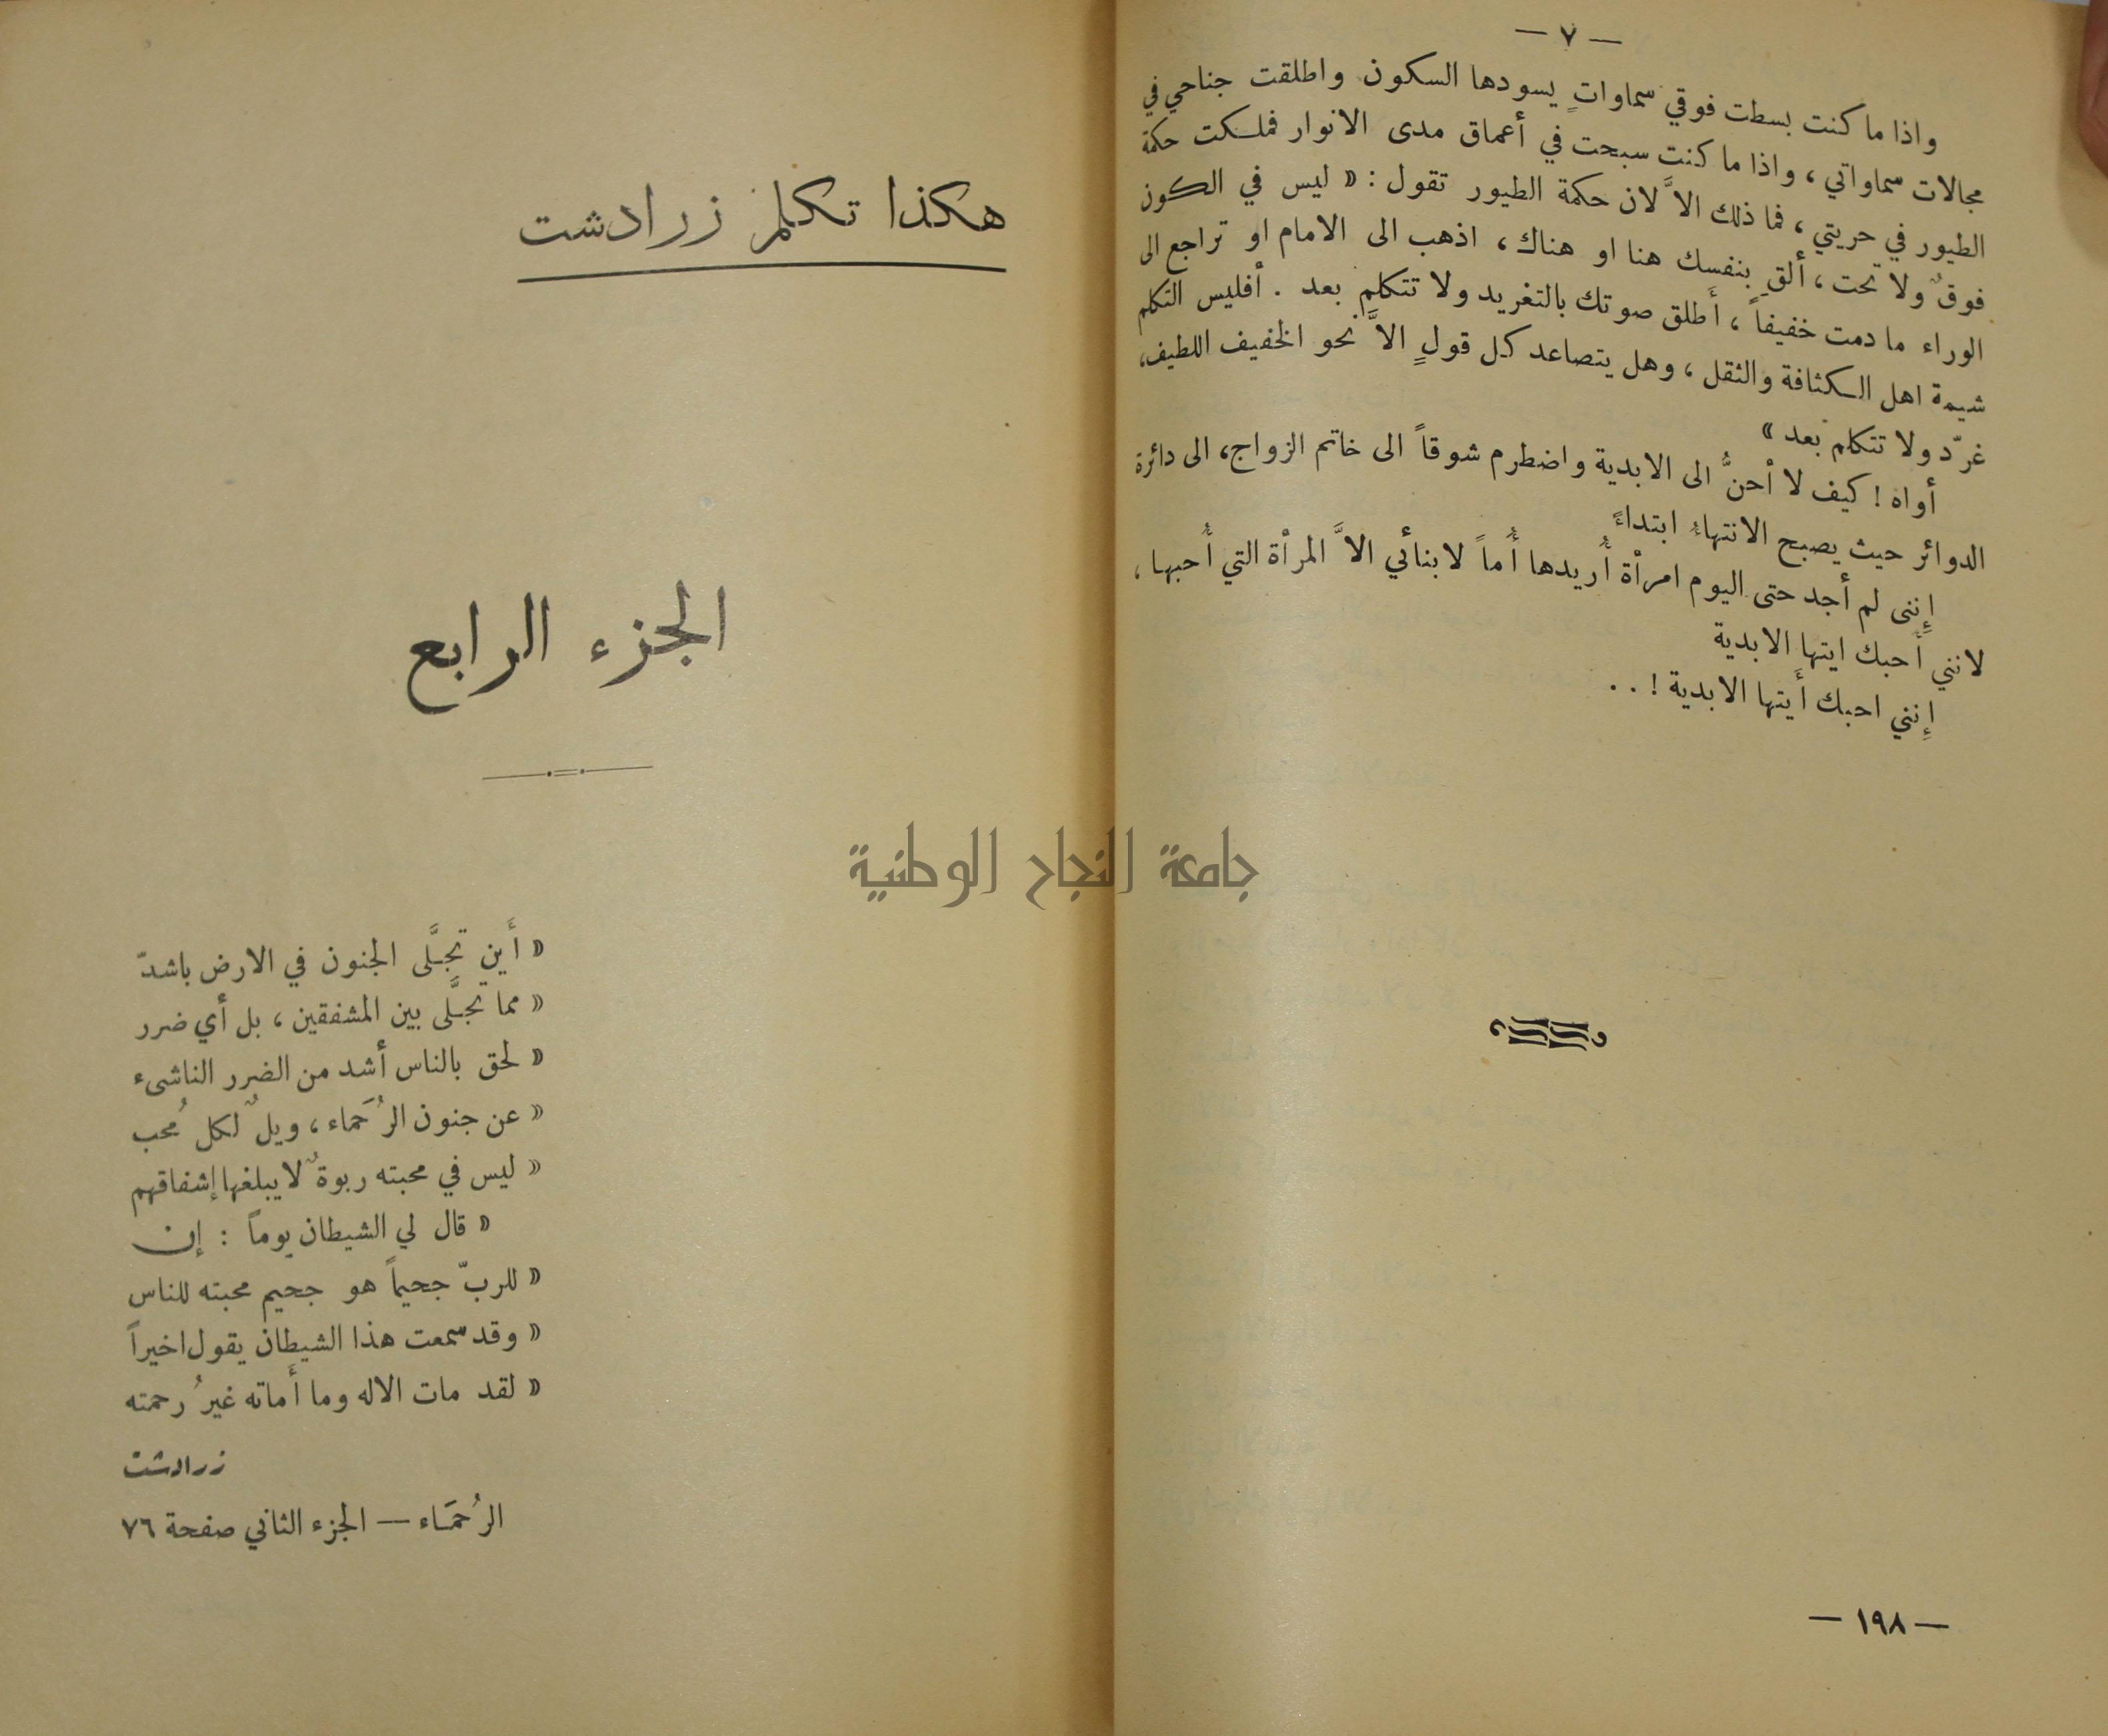 — ٧ —
واذا ما كنت بسطت فوقي سماواتٍ يسودها السكون واطلقت جناحي في
مجالات سماواتي ، واذا ما كنت سبحت في أعماق مدى الانوار فملكت حكمة
الطيور في حريتي ، فما ذلك الاَّ لان حكمة الطيور تقول : « ليس في الكون
فوقٌ ولا تحت ، ألقِ بنفسك هنا او هناك ، اذهب الى الامام او تراجع الى
الوراء ما دمت خفيفاً ، أَطلق صوتك بالتغريد ولا تتكلم بعد . أفليس التكلم
شيمة اهل الكثافة والثقل ، وهل يتصاعد كل قولٍ الاَّ نحو الخفيف اللطيف ،
غرّد ولا تتكلم بعد »
أواه ! كيف لا أحنُّ الى الابدية واضطرم شوقاً الى خاتم الزواج ، الى دائرة
الدوائر حيث يصبح الانتهاءُ ابتداءً
إِننى لم أجد حتى اليوم امرأة أُريدها أُماً لابنائي الاَّ المرأة التي أُحبها ،
لانني أحبك ايتها الابدية
إِنني احبك أَيتها الابدية ! . .
— ١٩٨ —
هكذا تكلم زرادشت
الجزء الرابع
« أَين تجلَّى الجنون في الارض باشدّ
« مما تجلَّى بين المشفقين ، بل أي ضرر
« لحق بالناس أشد من الضرر الناشىء
« عن جنون الرُحَماء ، ويلٌ لكل مُحب
« ليس في محبته ربوةٌ لا يبلغها إشفاقهم
« قال لي الشيطان يوماً : إن
« للربّ جحيماً هو جحيم محبته للناس
« وقد سمعت هذا الشيطان يقول اخيراً
« لقد مات الاله وما أَماته غيرُ رحمته
زرادشت
الرُحمَاء — الجزء الثاني صفحة ٧٦
جامعة النجاح الوطنية